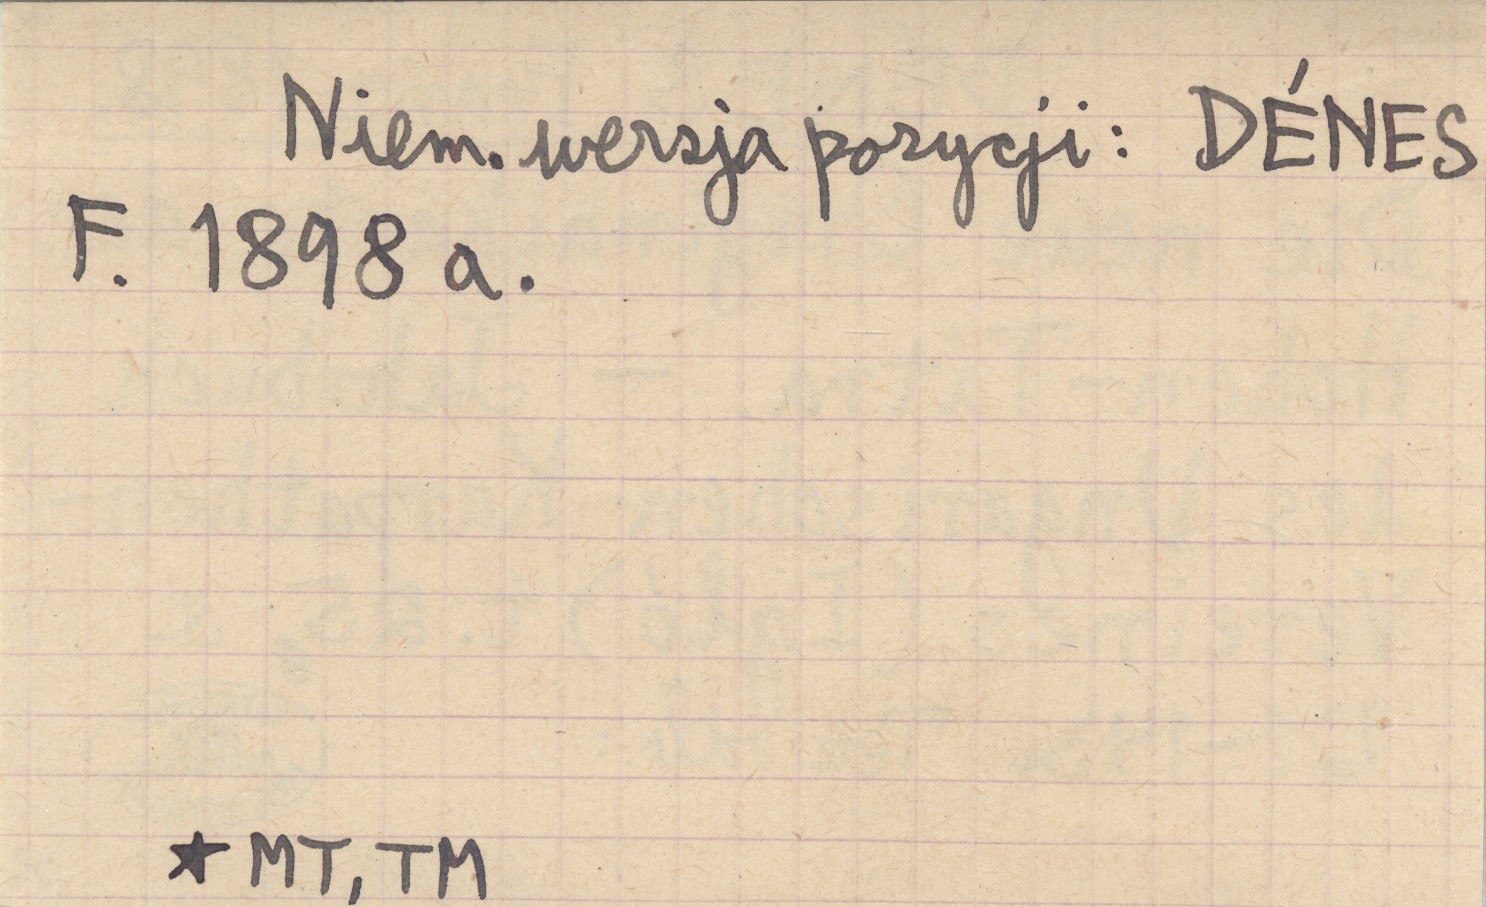 Niem. wersja pozycji: DÉNES
F. 1898 a.
★ MT, TM